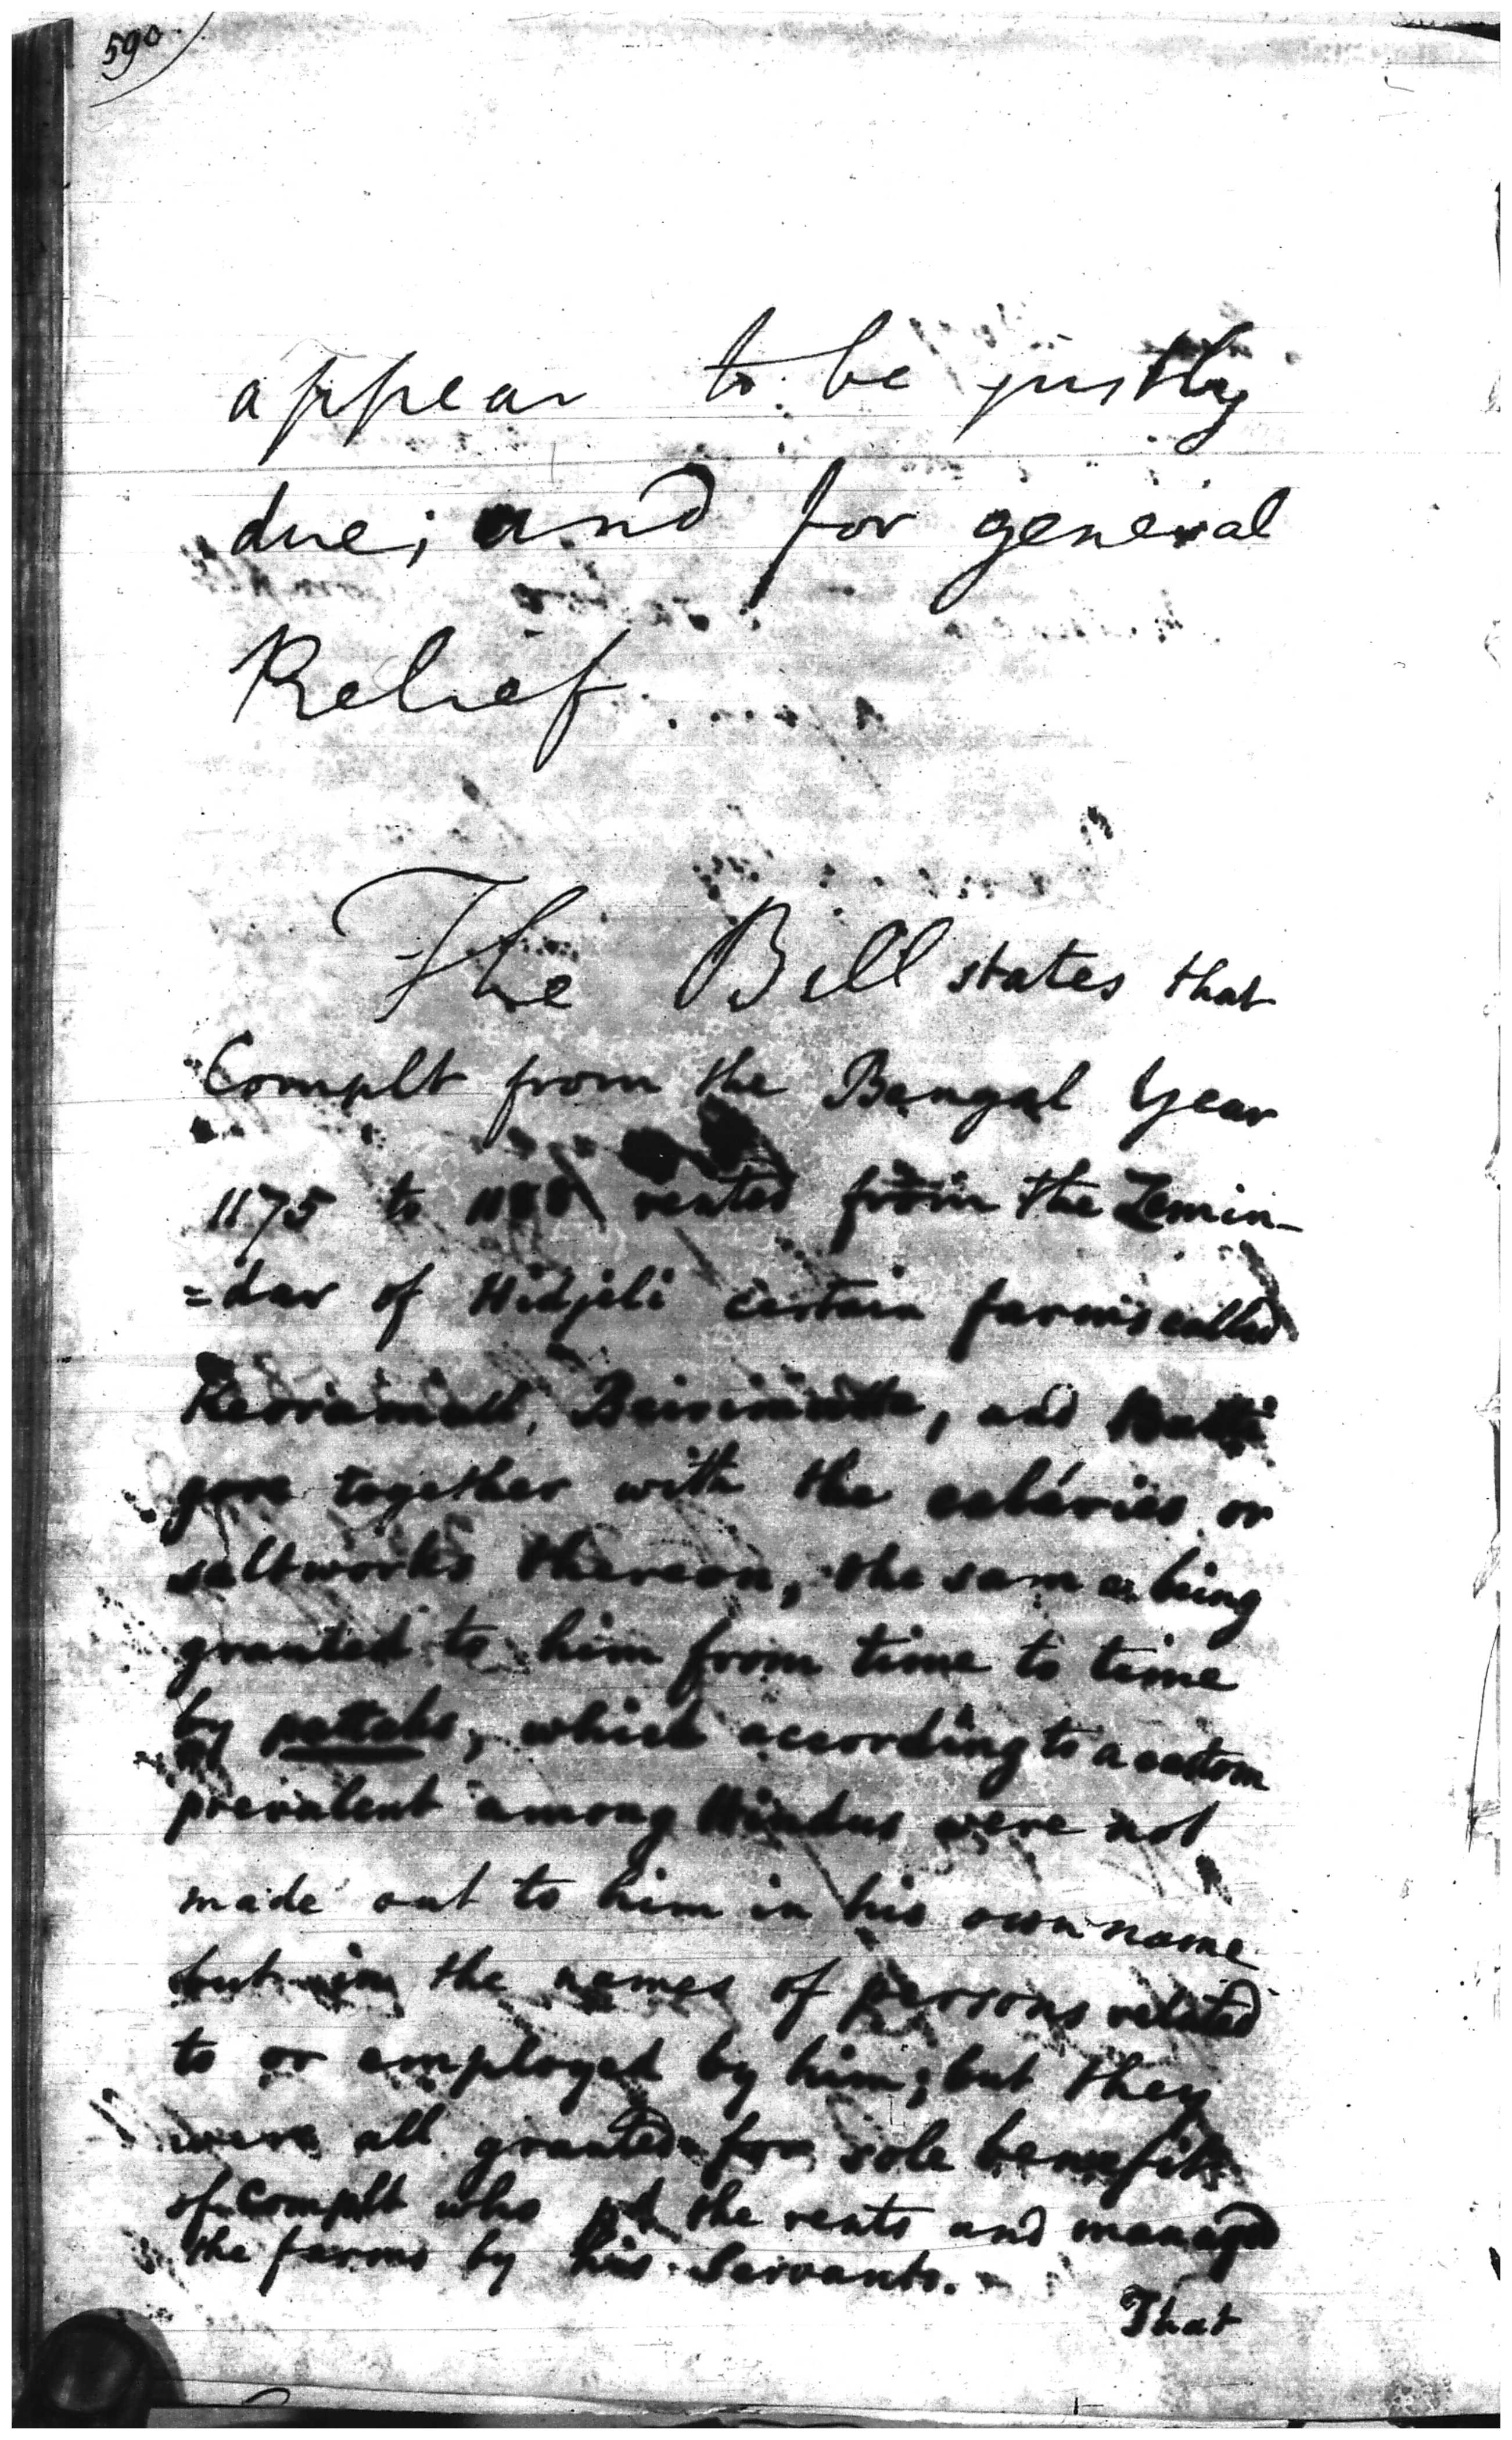 590
appear to be justly
due; and for general
Relief.
The Bill states that
Complt from the Bengal Year
1175 to 1188 rented from the Zemin-
=dar of Hidjeli certain farms called
and
gore together with the or
saltworks thereon, the same being
granted to him from time to time
by pottahs, which according to a custom
prevalent among Hindus were not
made out to him in his own name
but in the names of persons related
to or employed by him; but they
were all granted for sole benefit
of Complt who pd the rents and managed
the farms by his Servants.
That